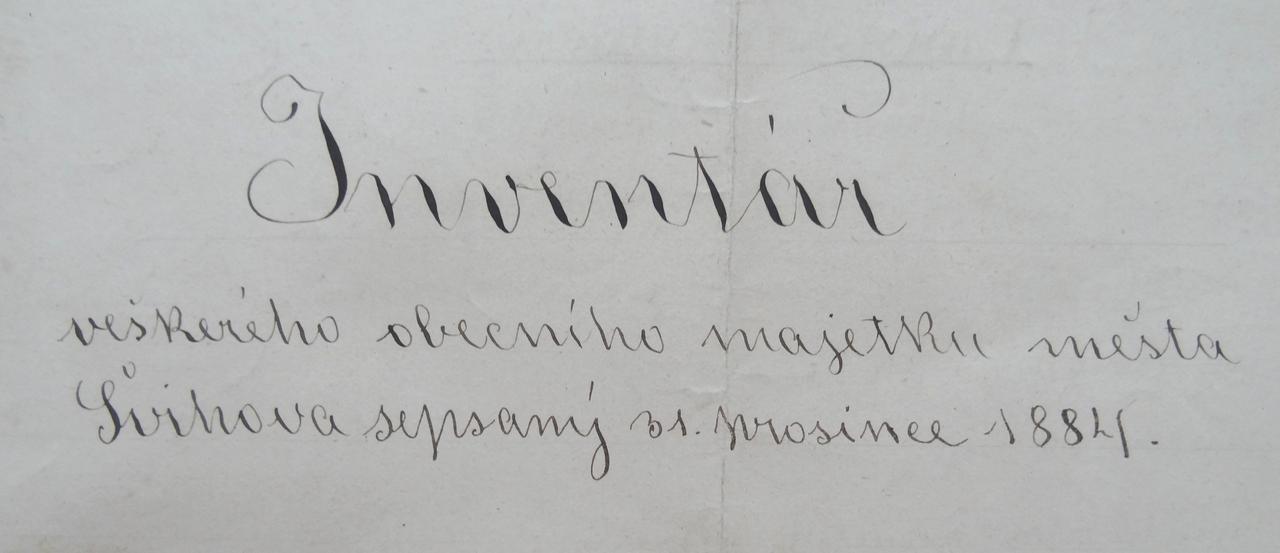 Inventár
veškerého obecního majetku města
Švihova sepsaný 31. prosince 1884.